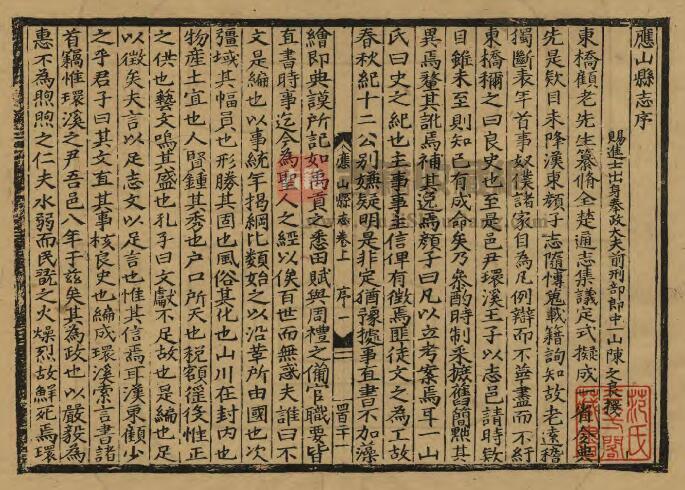 應山縣志序
賜進士出身奉政大夫前刑部郎中一山陳之良撰
東橋顧老先生纂脩全楚通志集議定式擬成一省全典
先是欵目未降漢東顏子志隨傳蒐載籍詢知故老遠稽
獨斷表年首事奴僕諸家自為凡例辯而不華盡而不紆
東橋稱之曰良史也至是邑尹環溪王子以志邑請時欵
目雖未至則知已有成命矣乃叅酌時制采摭舊簡黜其
異焉釐其訛焉補其逸焉顏子曰凡以立考案焉耳一山
氏曰史之紀也主事事主信俾有徵焉匪徒文之為工故
春秋紀十二公別嫌疑明是非定猶豫據事直書不加藻
繪即典謨所記如禹貢之悉田賦與周禮之備官職要皆
直書時事迄今為聖人之經以俟百世而無惑夫誰曰不
文是編也以事統年揭綱比類始之以沿革所由國也次
彊域其幅員也形勝其固也風俗其化也山川在封內也
物產土宜也人賢鍾其秀也户口所天也稅額徭役惟正
之供也藝文鳴其盛也孔子曰文獻不足故也是編也足
以徵矣夫言以足志文以足言也惟其信焉耳漢東顧少
之乎君子曰其文直其事核良史也編成環溪索言書諸
首竊惟環溪之尹吾邑八年于茲矣其為政也以嚴毅為
惠不為煦煦之仁夫水弱而民翫之火燥烈故鮮死焉環
應山縣志卷上 序 一